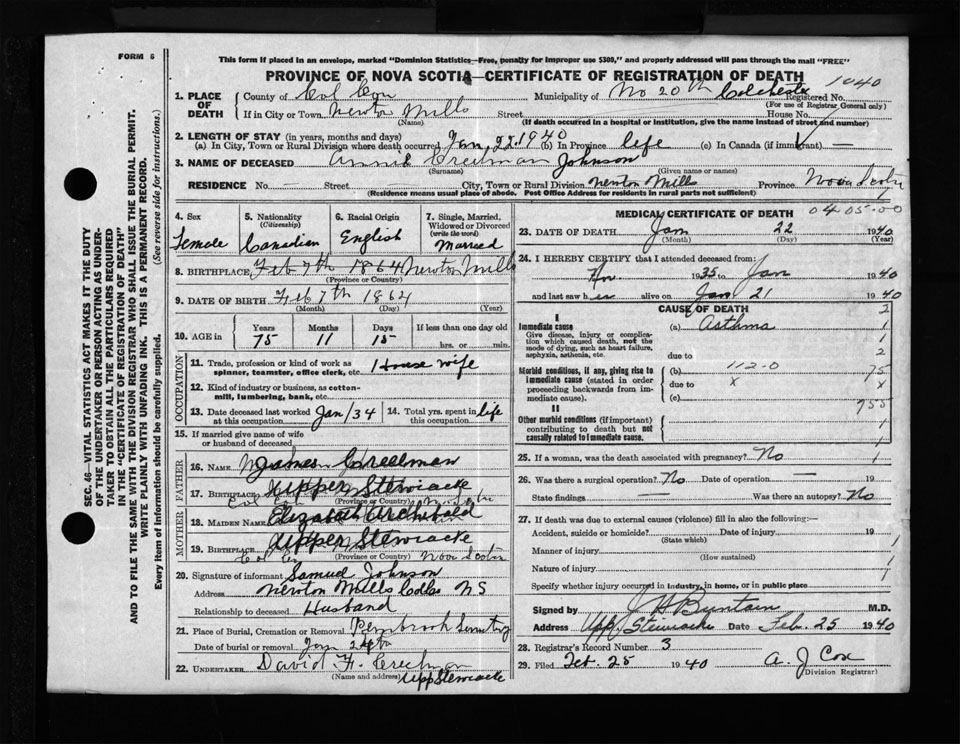 FORM 6
This form if placed in an envelope, marked "Dominion Statistics—Free, penalty for improper use $300," and properly addressed will pass through the mail "FREE"
PROVINCE OF NOVA SCOTIA—CERTIFICATE OF REGISTRATION OF DEATH
1940
1. PLACE OF DEATH
County of Col Municipality of No 20th Colchester Registered No.
(For use of Registrar General only)
If in City or Town Newton Mills Street House No.
(Name) (If death occurred in a hospital or institution, give the name instead of street and number)
2. LENGTH OF STAY (in years, months and days)
(a) In City, Town or Rural Division where death occurred Jan 22. 1940 (b) In Province life (c) In Canada (if immigrant) —
3. NAME OF DECEASED Annie Creelman Johnson
(Surname) (Given name or names)
RESIDENCE No. — Street City, Town or Rural Division Newton Mills Province Nova Scotia
(Residence means usual place of abode. Post Office Address for residents in rural parts not sufficient)
4. Sex Female
5. Nationality (Citizenship) Canadian
6. Racial Origin English
7. Single, Married, Widowed or Divorced (write the word) Married
8. BIRTHPLACE Feb 7th 1864 Newton Mills
(Province or Country)
9. DATE OF BIRTH Feb 7th 1864
(Month) (Day) (Year)
10. AGE in Years 75 Months 11 Days 15 If less than one day old hrs. or min.
OCCUPATION
11. Trade, profession or kind of work as spinner, teamster, office clerk, etc. House wife
12. Kind of industry or business, as cotton-mill, lumbering, bank, etc.
13. Date deceased last worked at this occupation Jan/34
14. Total yrs. spent in this occupation life
15. If married give name of wife or husband of deceased
FATHER
16. Name James Creelman
17. Birthplace Upper Stewiacke
(Province or Country)
MOTHER
18. Maiden Name Elizabeth Archibald
19. Birthplace Upper Stewiacke
Col Co (Province or Country) Nova Scotia
20. Signature of informant Samuel Johnson
Address Newton Mills NS
Relationship to deceased Husband
21. Place of Burial, Cremation or Removal
Date of burial or removal
22. UNDERTAKER David H. Creelman
(Name and address) Upp Stewiacke
MEDICAL CERTIFICATE OF DEATH 0405-00
23. DATE OF DEATH Jan 22 1940
(Month) (Day) (Year)
24. I HEREBY CERTIFY that I attended deceased from:
Nov. 1935 to Jan 1940
and last saw her alive on Jan 21 1940
CAUSE OF DEATH
I
Immediate cause (a) Asthma
Give disease, injury or complication which caused death, not the mode of dying, such as heart failure, asphyxia, asthenia, etc.
due to
Morbid conditions, if any, giving rise to immediate cause (stated in order proceeding backwards from immediate cause).
(b) 112-0
due to x
(c)
II
Other morbid conditions (if important) contributing to death but not causally related to immediate cause.
2
1
1
2
75
x
755
1
1
25. If a woman, was the death associated with pregnancy? No
26. Was there a surgical operation? No Date of operation —
State findings — Was there an autopsy? No
27. If death was due to external causes (violence) fill in also the following:—
Accident, suicide or homicide? Date of injury 19
(State which)
Manner of injury
(How sustained)
Nature of injury
Specify whether injury occurred in industry, in home, or in public place
Signed by J H Buntain M.D.
Address Upp Stewiacke Date Feb. 25 1940
28. Registrar's Record Number 3
29. Filed Feb. 25 1940 A. J Cox
(Division Registrar)
SEC. 46—VITAL STATISTICS ACT MAKES IT THE DUTY
OF THE UNDERTAKER OR PERSON ACTING AS UNDER-
TAKER TO OBTAIN ALL THE PARTICULARS REQUIRED
IN THE "CERTIFICATE OF REGISTRATION OF DEATH"
AND TO FILE THE SAME WITH THE DIVISION REGISTRAR WHO SHALL ISSUE THE BURIAL PERMIT.
WRITE PLAINLY WITH UNFADING INK. THIS IS A PERMANENT RECORD.
Every item of information should be carefully supplied. (See reverse side for instructions.)